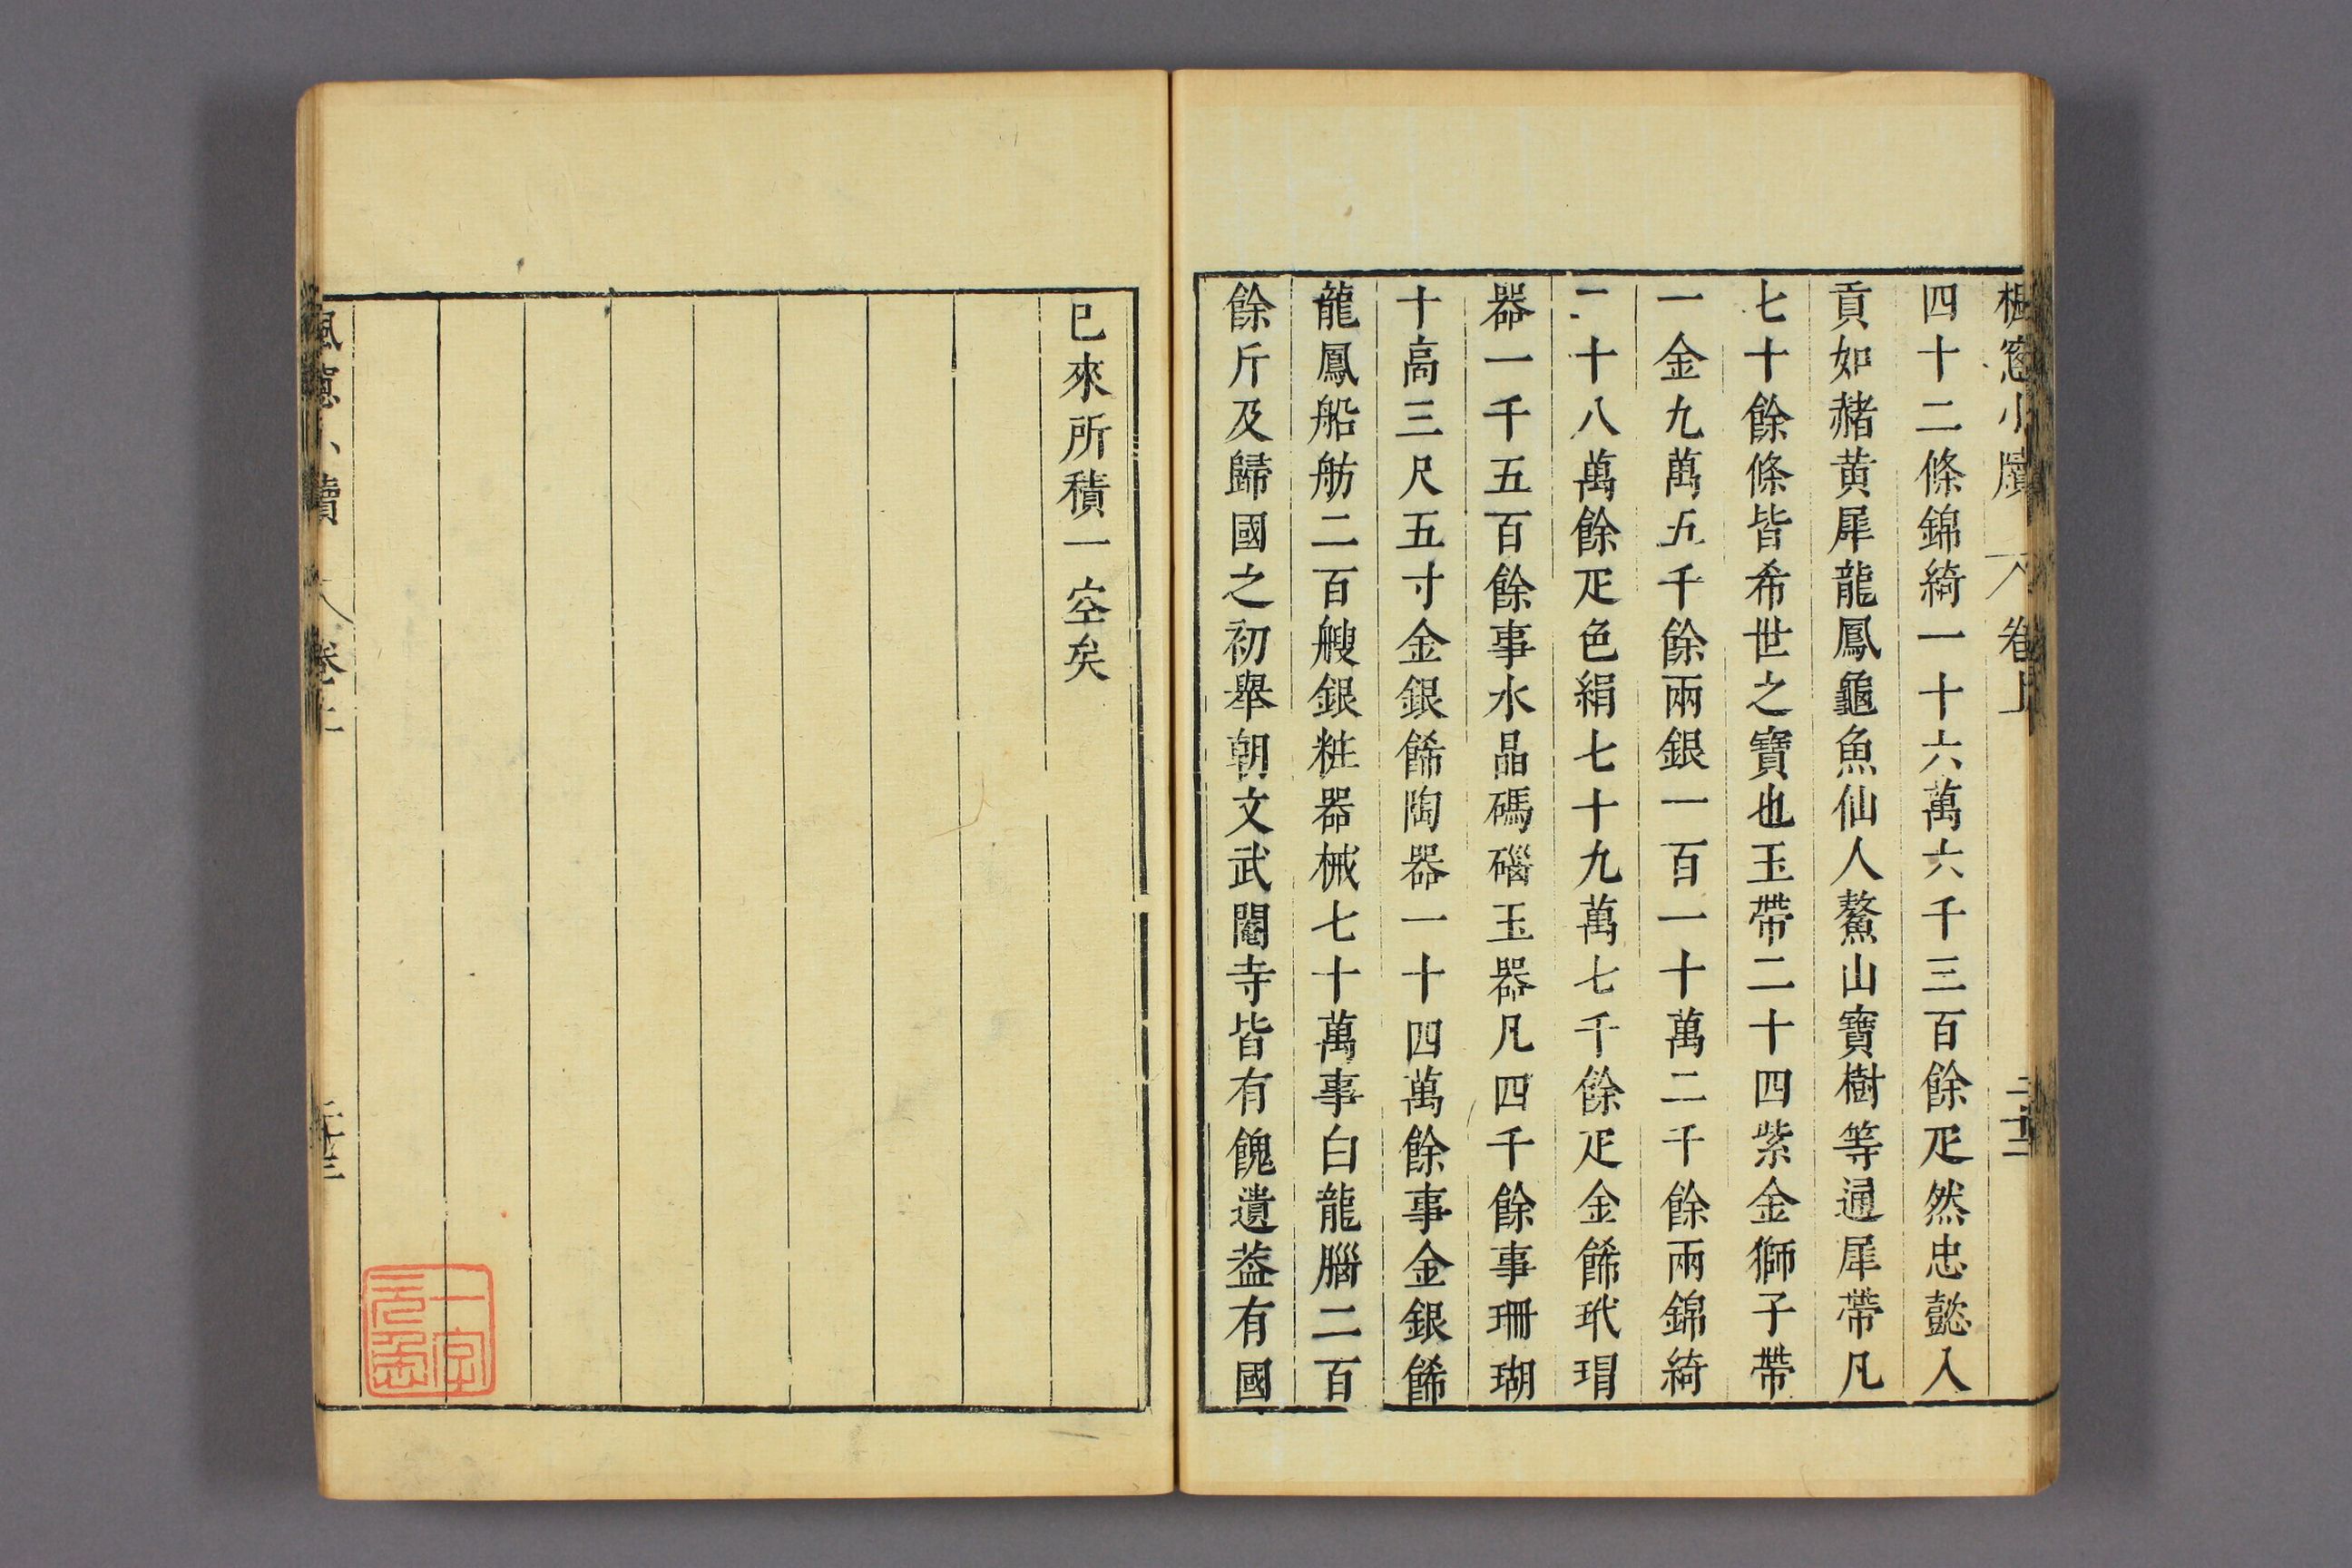 楓窻小牘 卷上
四十二條錦綺一十六萬六千三百餘疋然忠懿入
貢如赭黃犀龍鳳龜魚仙人鰲山寶樹等通犀帶凡
七十餘條皆希世之寶也玉帶二十四紫金獅子帶
一金九萬五千餘兩銀一百一十萬二千餘兩錦綺
二十八萬餘疋色絹七十九萬七千餘疋金餙玳瑁
器一千五百餘事水晶碼碯玉器凡四千餘事珊瑚
十高三尺五寸金銀餙陶器一十四萬餘事金銀餙
龍鳳船舫二百艘銀粧器械七十萬事白龍腦二百
餘斤及歸國之初舉朝文武閹寺皆有餽遺葢有國
已來所積一空矣
楓窻小牘 卷上